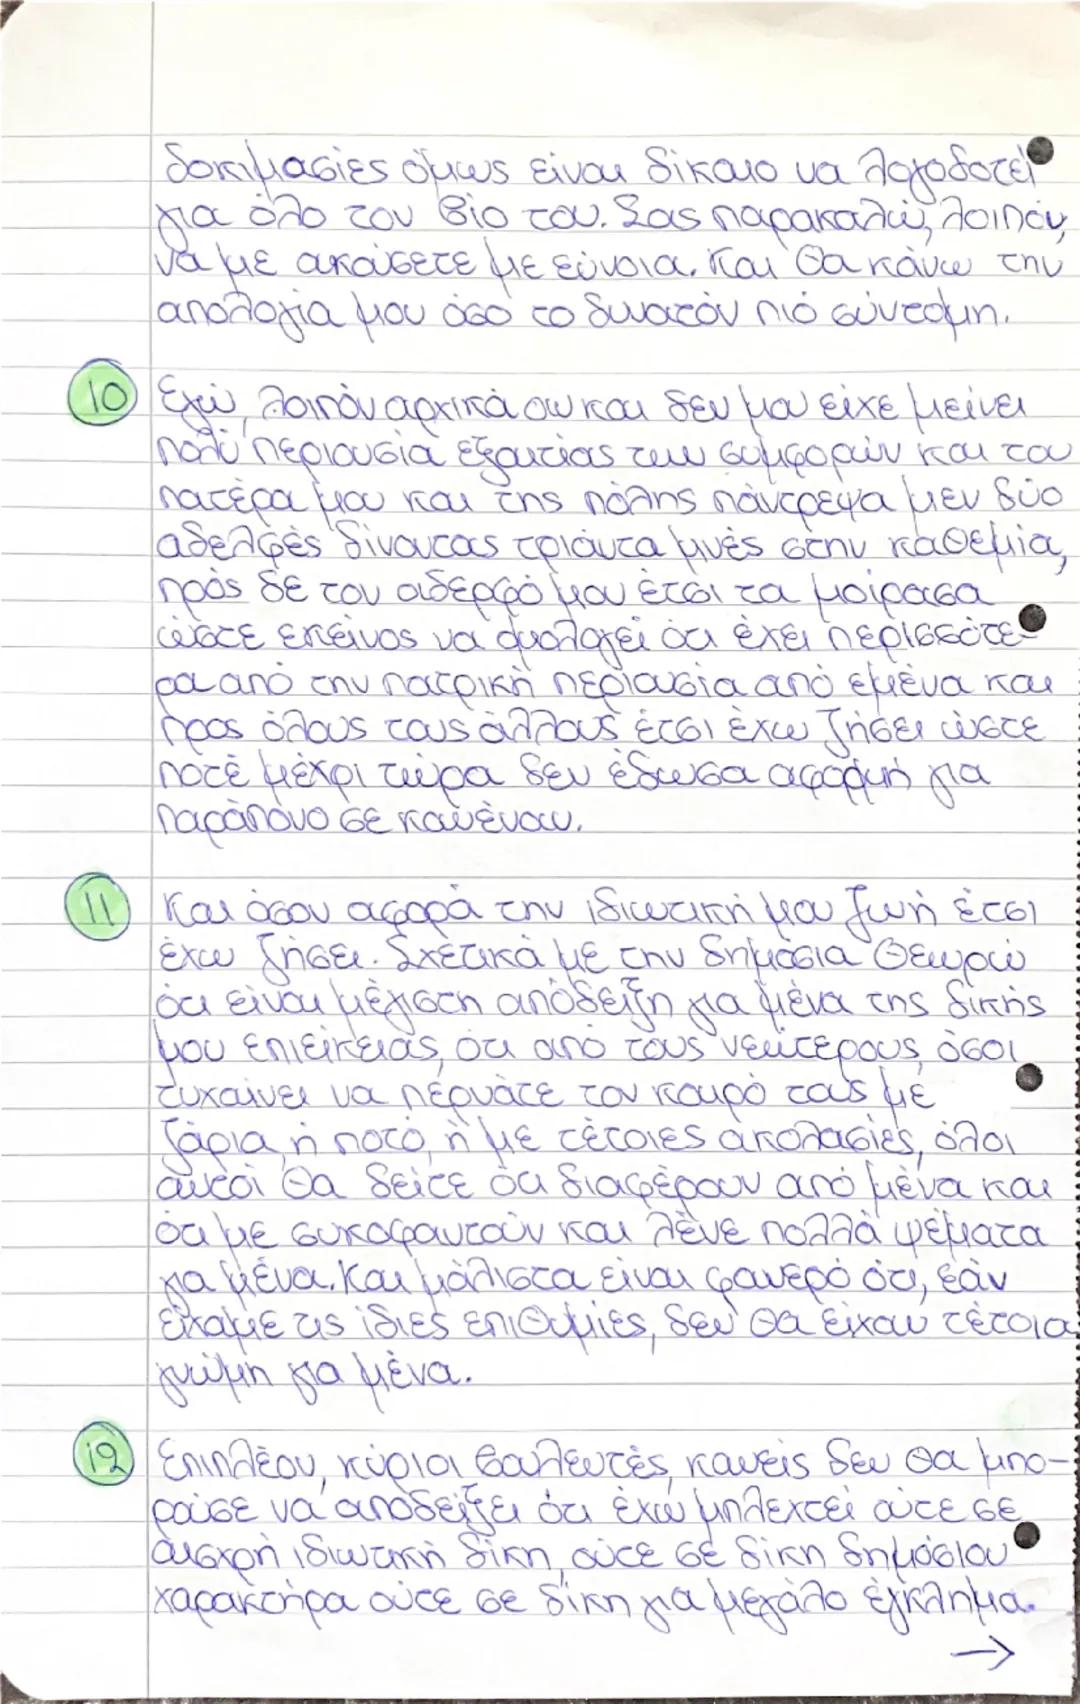 δοκιμασίες όμως είναι δίκαιο να λογοδοτεί
για όλο τον βίο του. Σας παρακαλώ, λοιπόν,
να με ακούσετε με εύνοια. Και θα κάνω την
απολογία μου όσο το δυνατόν πιό σύντομη.
10 Εγώ, λοιπόν αρχικά αν και δεν μου είχε μείνει
πολύ περιουσία εξαιτίας των συμφορών και του
πατέρα μου και της πόλης πάντρεψα μεν δύο
αδελφές δίνοντας τριάντα μνές στην καθεμία,
πρός δε τον αδερφό μου έτσι τα μοίρασα
ώστε εκείνος να ομολογεί ότι έχει περισσότε-
ρα από την πατρική περιουσία από εμένα και
προς όλους τους άλλους έτσι έχω ζήσει ώστε
ποτέ μέχρι τώρα δεν έδωσα αφορμή για
παράπονο σε κανέναν.
11 Και όσον αφορά την ιδιωτική μου ζωή έτσι
έχω ζήσει. Σχετικά με την δημόσια θεωρώ
ότι είναι μέγιστη απόδειξη για μένα της δικής
μου επιείκειας, ότι από τους νεώτερους, όσοι
τυχαίνει να περνάτε τον καιρό τους με
ζάρια, ή ποτό, ή με τέτοιες ακολασίες, όλοι
αυτοί θα δείτε ότι διαφέρουν από μένα και
ότι με συκοφαντούν και λένε πολλά ψέματα
για μένα. Και μάλιστα είναι φανερό ότι, εάν
είχαμε τις ίδιες επιθυμίες, δεν θα είχαν τέτοια
γνώμη για μένα.
12 Επιπλέον, κύριοι βουλευτές, κανείς δεν θα μπο-
ρούσε να αποδείξει ότι έχω μπλεχτεί ούτε σε
αισχρή ιδιωτική δίκη, ούτε σε δίκη δημόσιου
χαρακτήρα ούτε σε δίκη για μεγάλο έγκλημα.
→